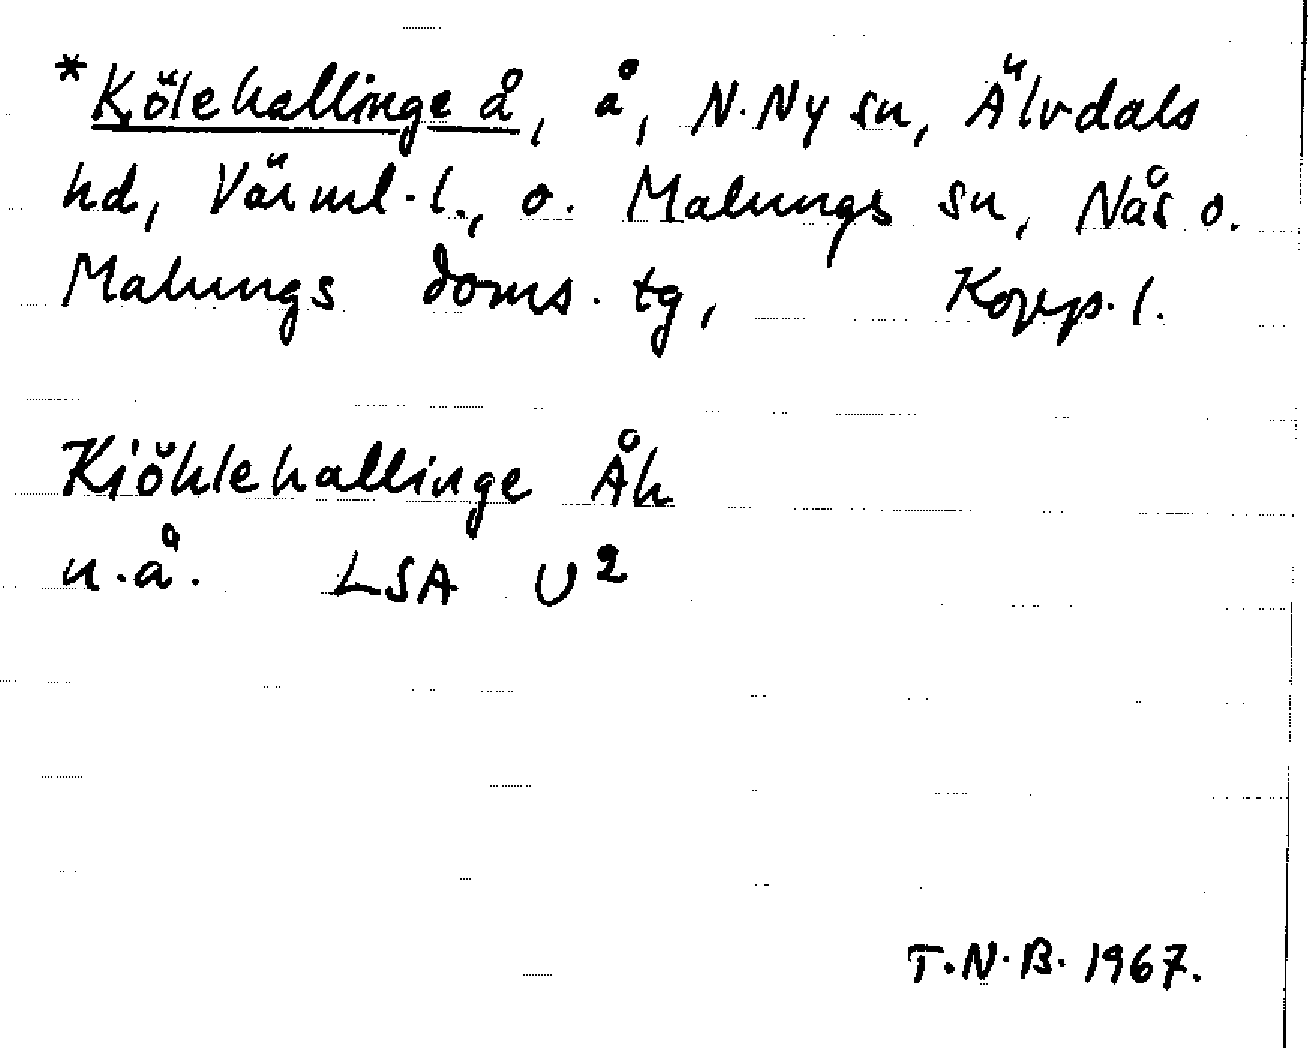 *Kölehallinge å, å, N. Ny sn, Älvdals
hd, Värml. l., o. Malungs sn, Nås o.
Malungs doms. tg, Kopp. l.
Kiöhlehallinge Åh
n.å. LSA U²
T.N.B. 1967.